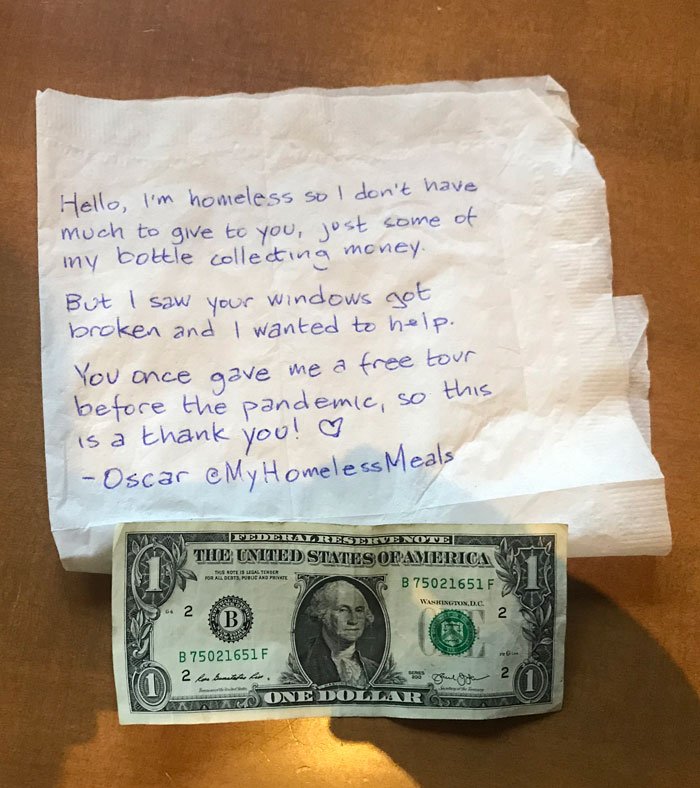 Hello, I'm homeless so I don't have
much to give to you, just some of
my bottle collecting money.
But I saw your windows got
broken and I wanted to help.
You once gave me a free tour
before the pandemic, so this
is a thank you! ♡
-Oscar @MyHomelessMeals
FEDERAL RESERVE NOTE
THE UNITED STATES OF AMERICA
THIS NOTE IS LEGAL TENDER
FOR ALL DEBTS, PUBLIC AND PRIVATE
B 75021651 F
WASHINGTON, D.C.
1
1
2
2
B
ONE
B 75021651 F
2
2
SERIES
1
1
ONE DOLLAR